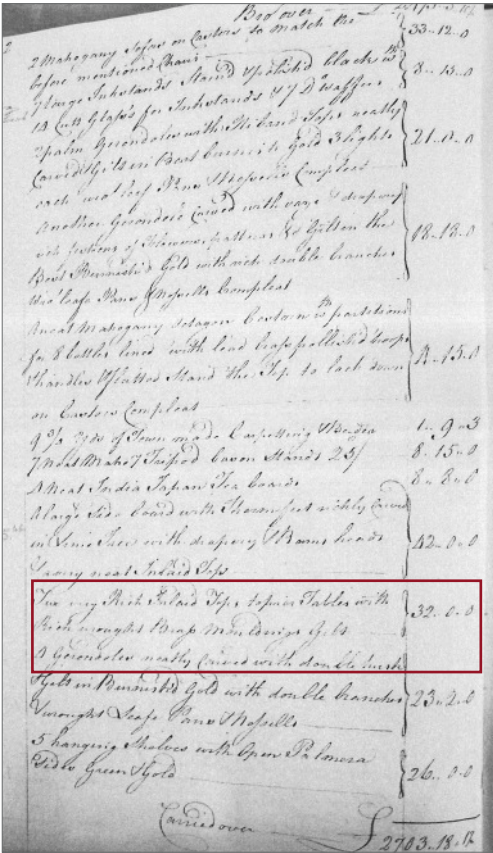 Bro.t over
2
2 Mahogany Sofas on Castors to Match the 33-12-0
before mentioned Chairs
7 large Inkstands Stain'd & polish'd black wth 8-13-0
14 Cutt Glass's for Inkstands & 7 Do waffers
Gerondoles with Riband Tops neatly
Carved & Gilt in Best Burnish Gold 3 lights 21-0-0
each wro't leaf Pans & Nossells Compleat
Another Gerondole Carved with vase & drapery
rich festoons of flowers & Gilt in the 18-18-0
Best Burnish'd Gold with rich double branches
wro't leafe Pans & Nossells Compleat
A neat Mahogany Octagon Cestern wth partitions
for 8 bottles lined with lead brass pollish'd hoops
handles & flatted Stand the Top to lock down 15-0
on Castors Compleat
9 3/4 Yds of Town made Carpetting & Border 1-9-3
7 Neat Maho'y Tripod Stands 25/ 8-15-0
4 Neat India Japan Tea boards 8-8-0
A large Side board with Therm feet richly Carved
in Lime Tree with drapery & Rams heads 42-0-0
& very neat Inlaid Top
Two very Rich Inlaid Tops to pier Tables with 32-0-0
Rich wrought Brass Mouldings Gilt
Gerondoles neatly Carved with double
& Gilt in Burnished Gold with double branches 23-2-0
wrought Leafe Pans & Nossells
5 hanging Shelves with Open
Sides Green & Gold 26-0-0
Carried over £ 2703-18-